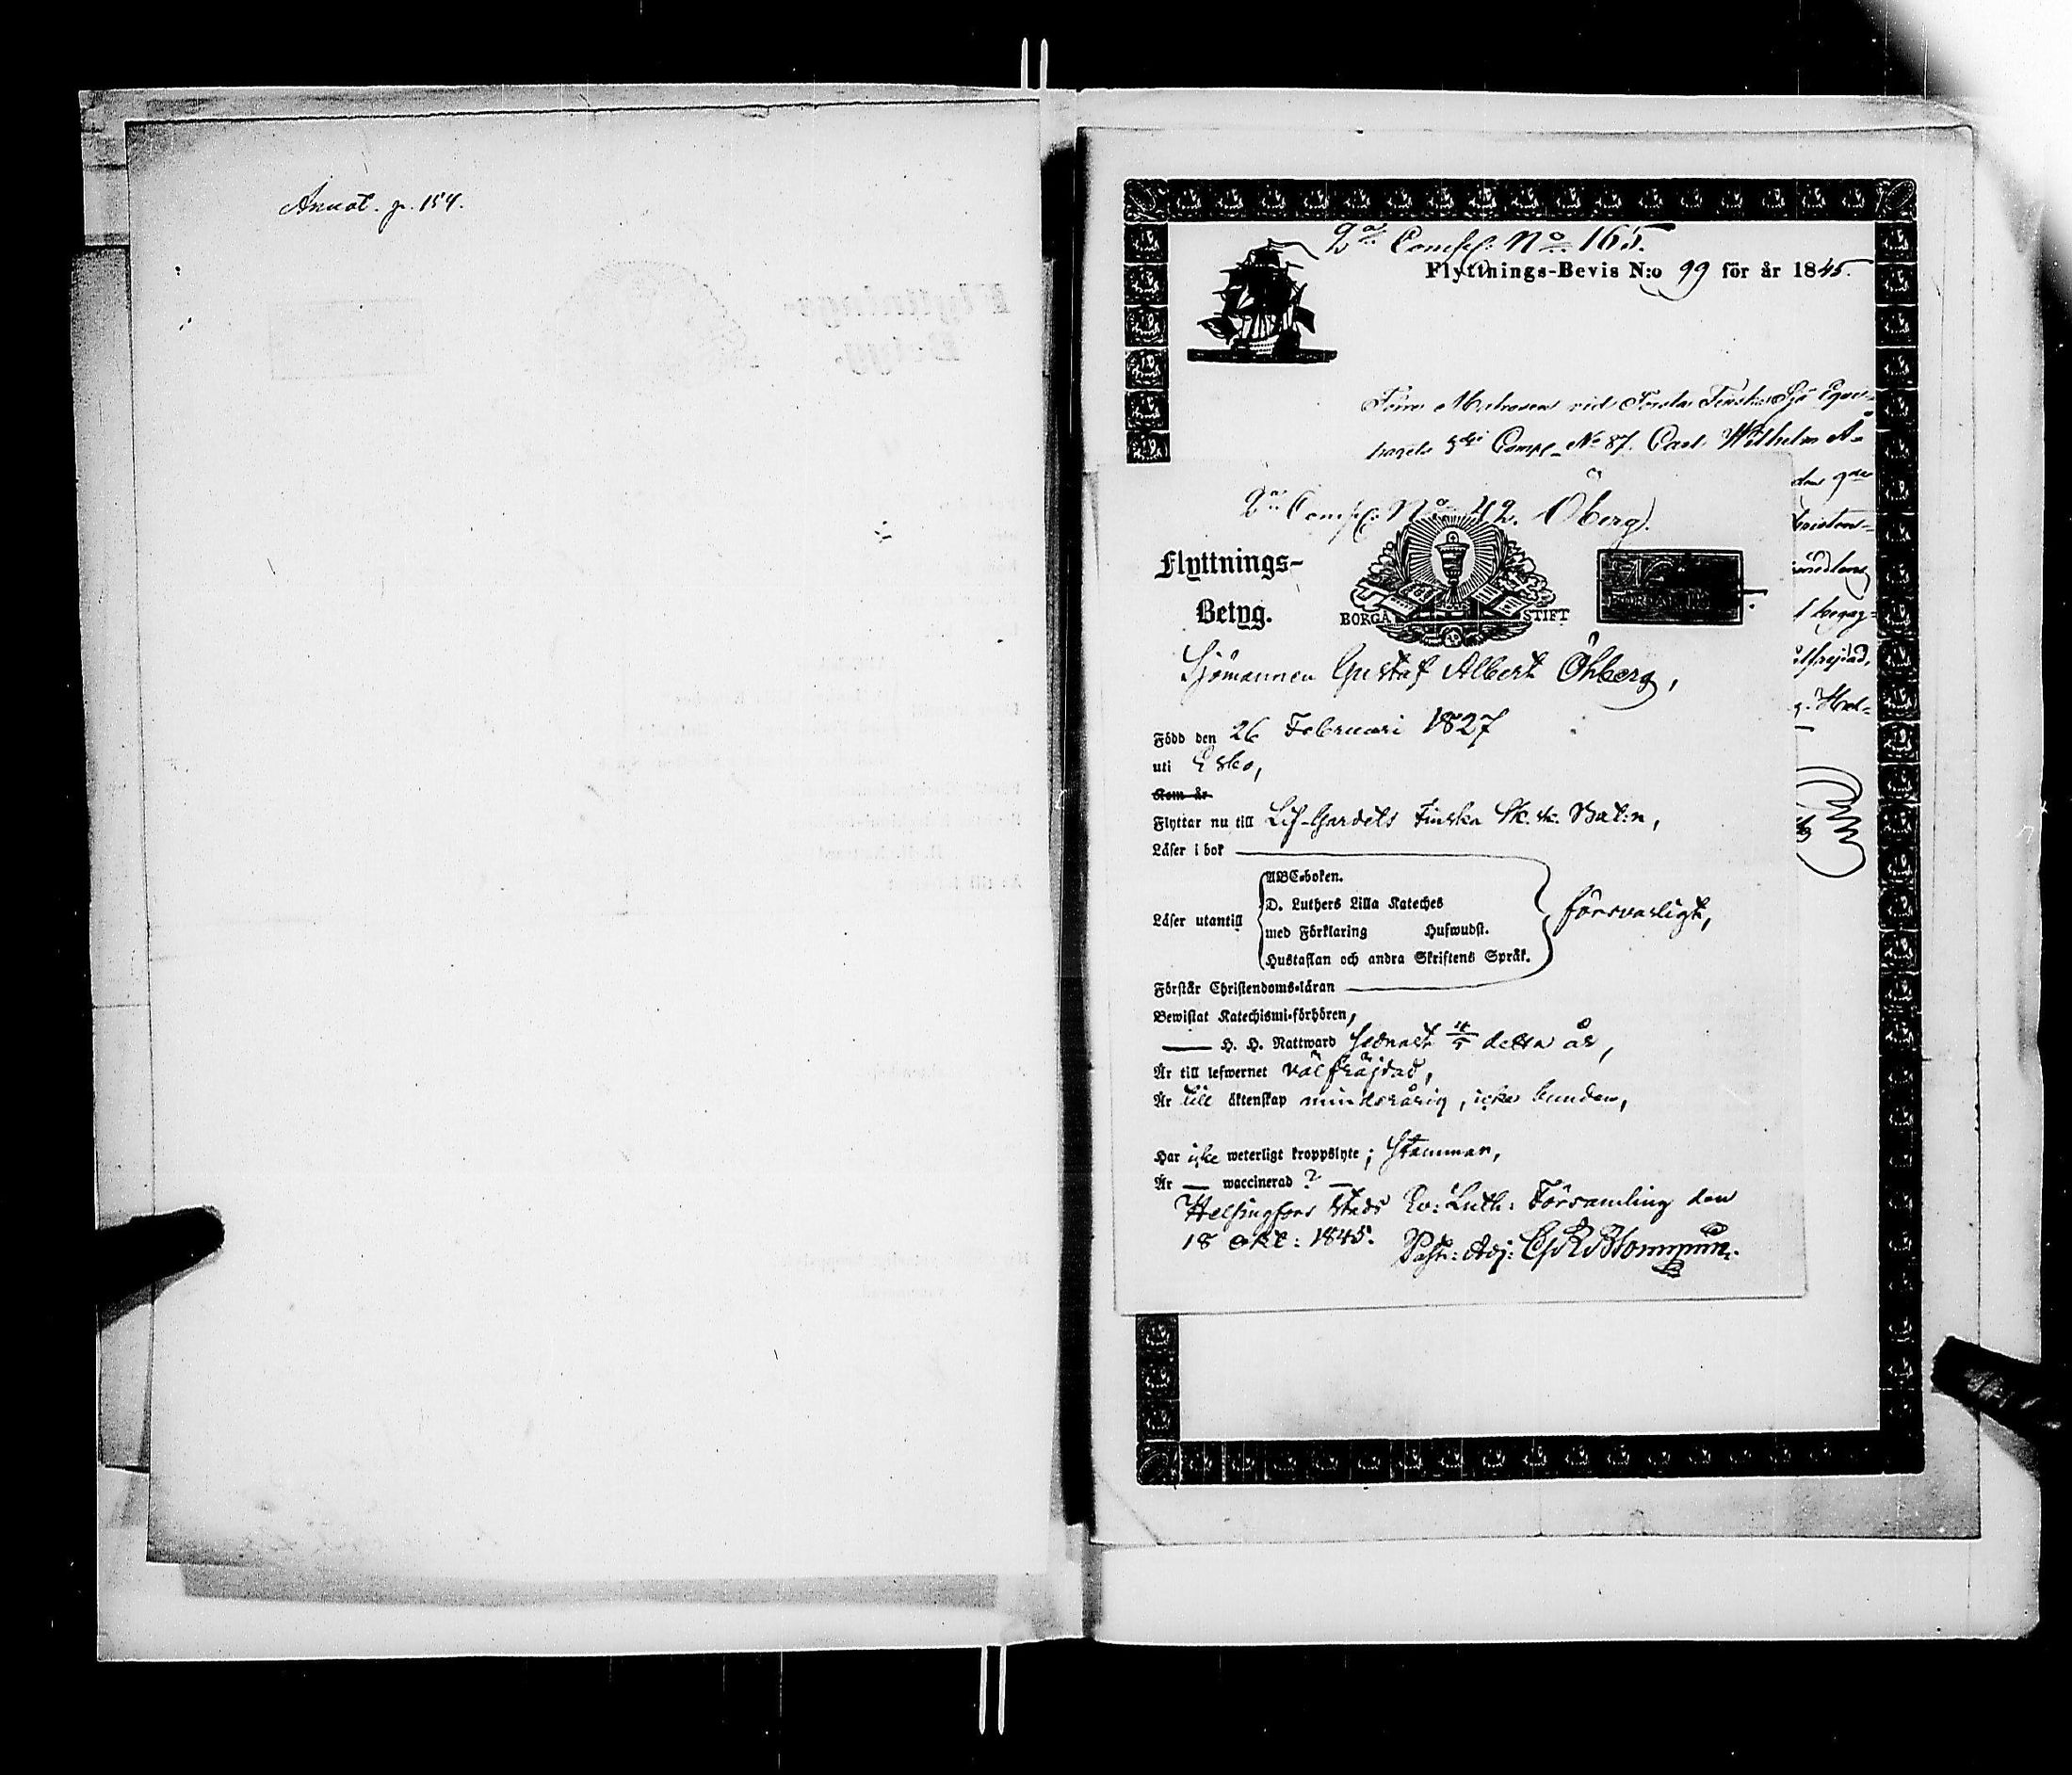 Annot. p. 154.
2:a Comp: No 165.
Flyttnings-Bevis N:o 99 för år 1845.
Förre Matrosen vid Första Finska Sjö Equi-
pagets Comp. No 87. Carl Wilhelm
2:a Comp: No 42. Öberg).
Flyttnings-
Betyg.
BORGÅ STIFT
Sjömannen Gustaf Albert Öhberg,
Född den 26 Februari 1827
uti Esbo,
Kom år
Flyttar nu till Lif-Gardets Finska Sk. sk. Bat:n,
Läser i bok
ABC-boken.
D. Luthers Lilla Kateches
Läser utantill
med Förklaring Hufwudst.
Hustaflan och andra Skriftens Språk.
försvarligt,
Förstår Christendoms-läran
Bewistat Katechismi-förhören,
H. H. Nattward sednast detta år,
Är till lefwernet välfräjdad,
Är till äktenskap minderårig, icke bunden,
Har icke weterligt kroppslyte; stammar,
Är — waccinerad ? —
Helsingfors Stads Ev: Luth: Församling den
18 Okt: 1845. Past: Adj: